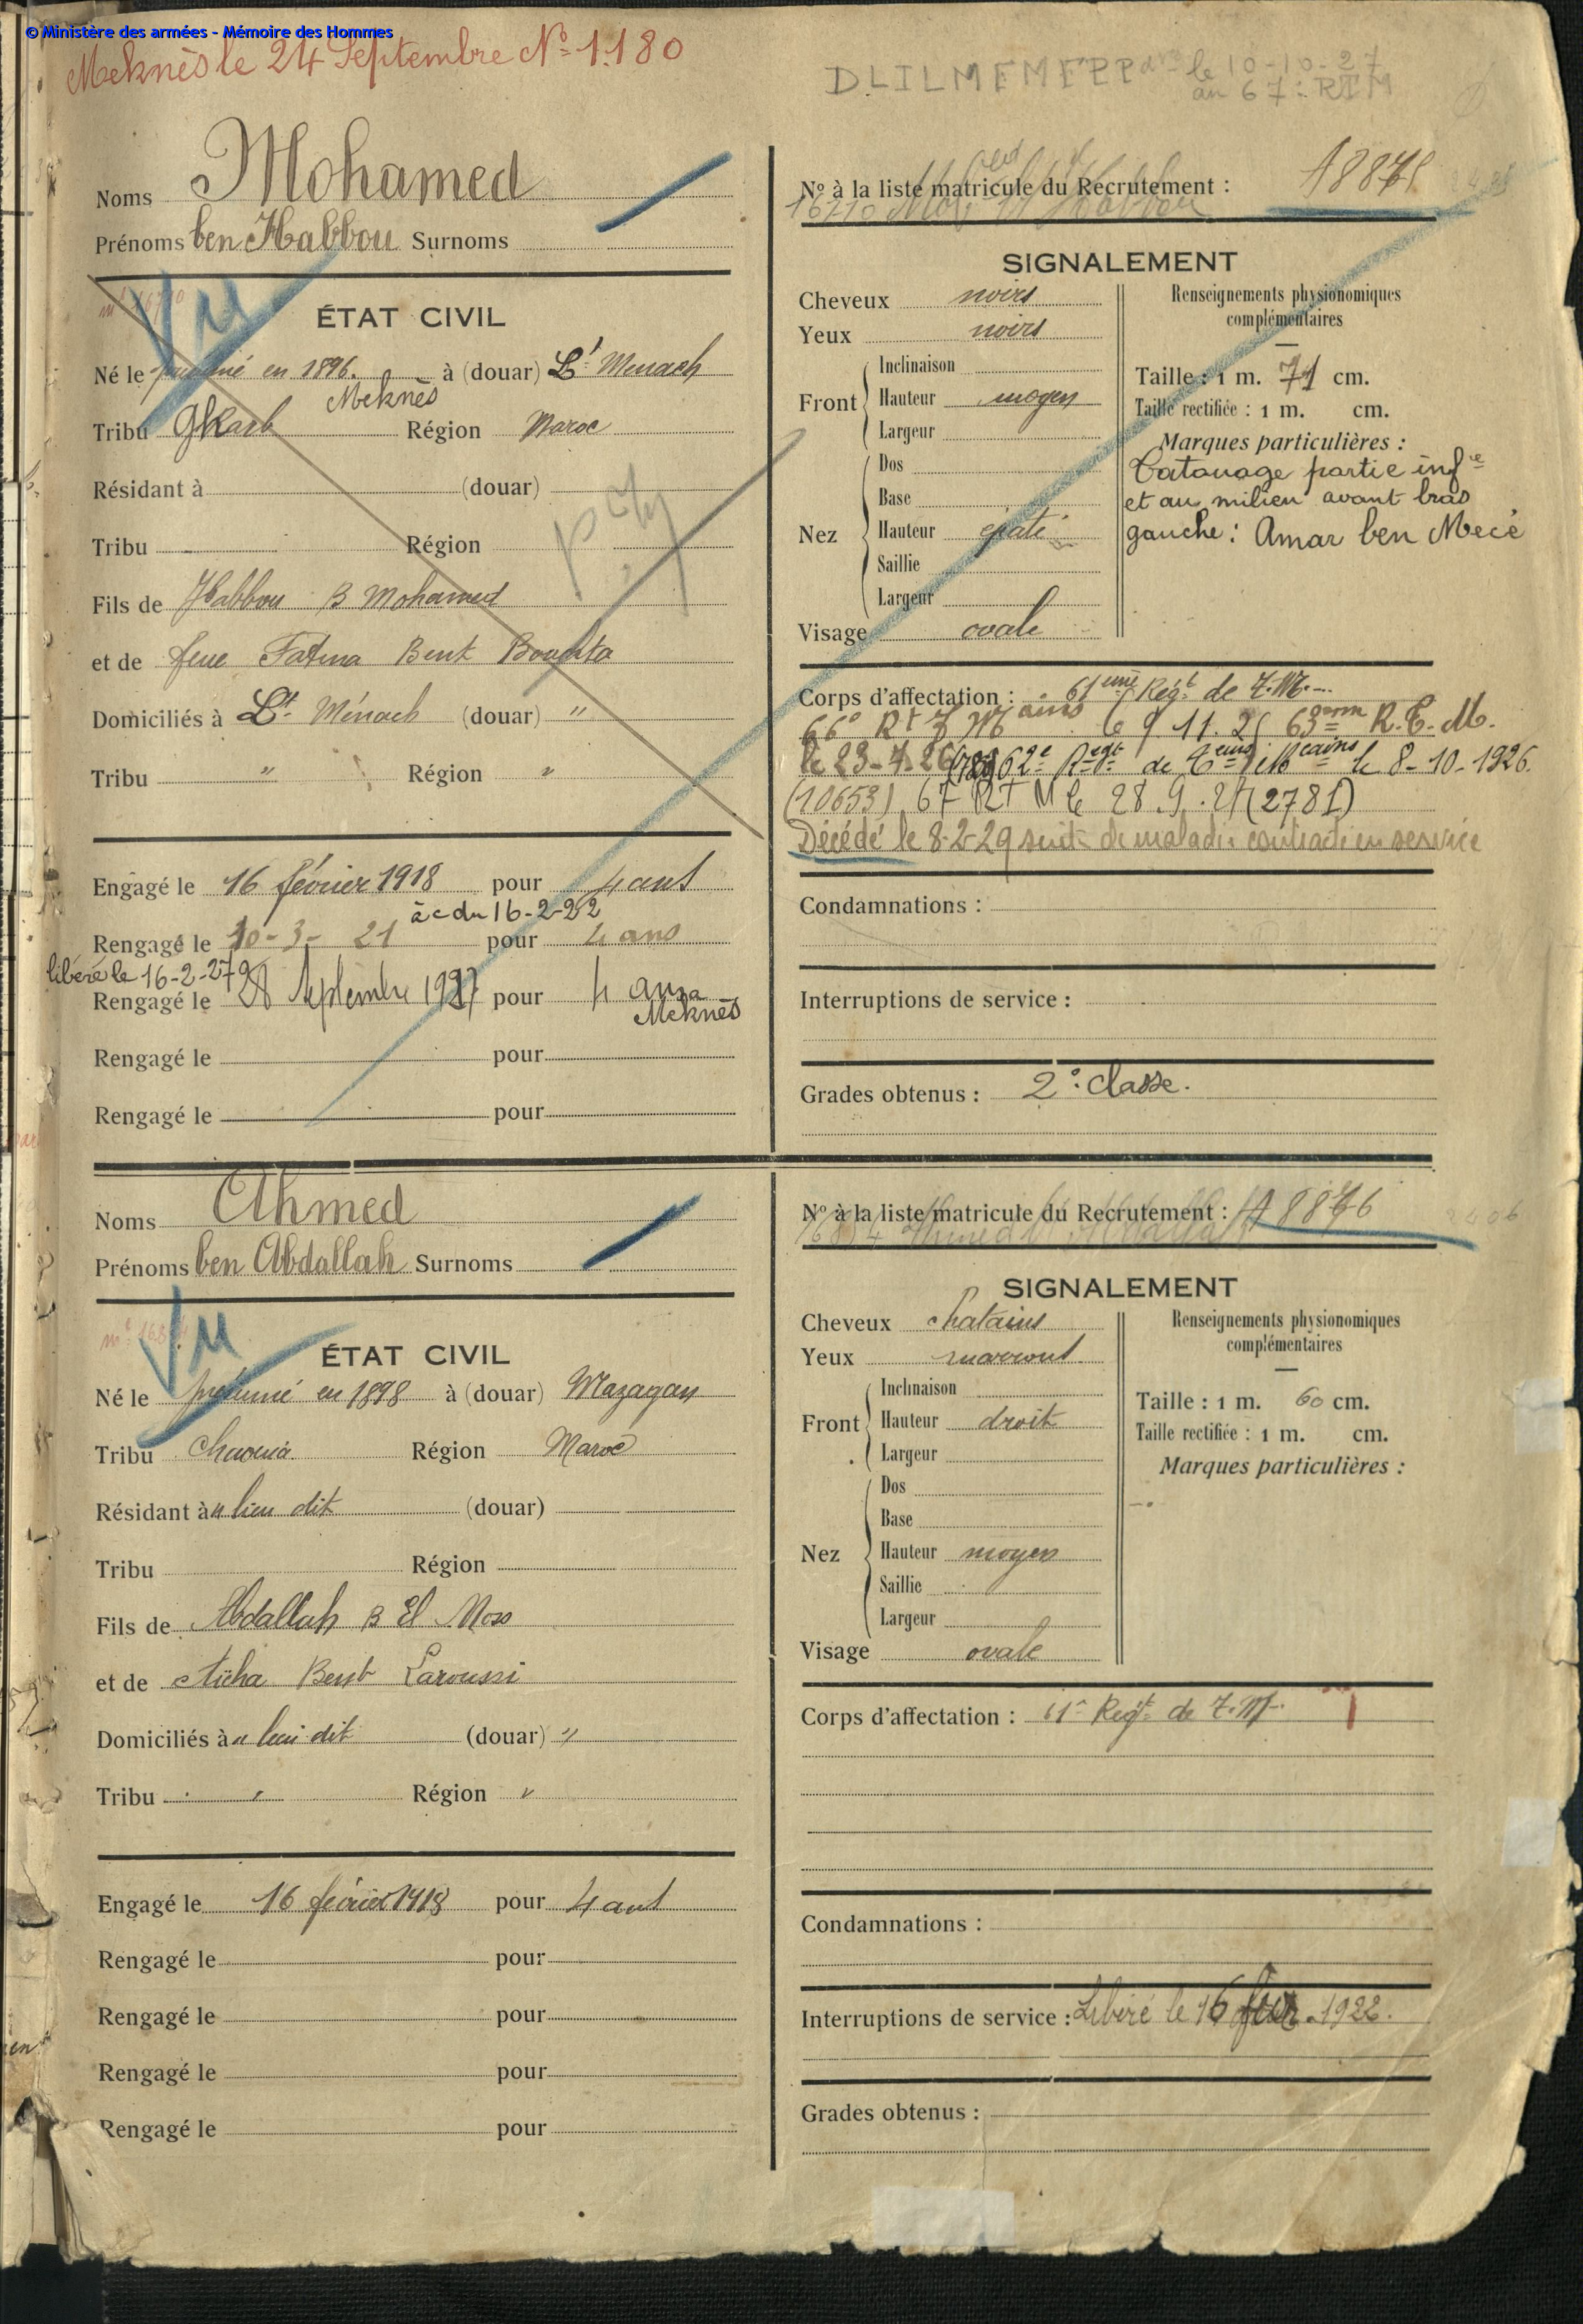 © Ministère des armées - Mémoire des Hommes
Meknès le 24 Septembre No 1.180
DLILMEMEPP le 10-10-27
au 67e RTM
Noms Mohamed
Prénoms ben Habbou Surnoms
ÉTAT CIVIL
Né le présumé en 1896. à (douar) Lt Menach
Meknès
Tribu Gharb Région Maroc
Résidant à (douar)
Tribu Région
Fils de Habbou B Mohamed
et de feue Fatma Bent Bouchta
Domiciliés à Lt Ménach (douar) "
Tribu " Région "
Engagé le 16 février 1918 pour 4 ans
à c du 16-2-22
Rengagé le 10-3-21 pour 4 ans
libéré le 16-2-27
Rengagé le 28 Septembre 1927 pour 4 ans
à Meknès
Rengagé le pour
Rengagé le pour
No à la liste matricule du Recrutement : 18875
16710 Moh
SIGNALEMENT
Cheveux noirs
Yeux noirs
Front
Inclinaison
Hauteur moyen
Largeur
Nez
Dos
Base
Hauteur épaté
Saillie
Largeur
Visage ovale
Renseignements physionomiques
complémentaires
Taille : 1 m. 71 cm.
Taille rectifiée : 1 m. cm.
Marques particulières :
Tatouage partie infre
et au milieu avant bras
gauche : Amar ben Mecé
Corps d'affectation : 61ème Régt de T.M.
66e Rt T Mains le 9 11.25 63ème R.T.M.
le 23-7-26 62e Regt de Teurs Mcains le 8-10-1926.
(10653) 67 RTM le 28.9.27 (2781)
Décédé le 8-2-29 suite de maladie contractée en service
Condamnations :
Interruptions de service :
Grades obtenus : 2e classe.
Noms Ahmed
Prénoms ben Abdallah Surnoms
ÉTAT CIVIL
Né le présumé en 1898 à (douar) Mazagan
Tribu Chaouia Région Maroc
Résidant à u lieu dit (douar)
Tribu Région
Fils de Abdallah B El Moss
et de Aïcha Bent Laroussi
Domiciliés à u lieu dit (douar) "
Tribu " Région "
Engagé le 16 février 1918 pour 4 ans
Rengagé le pour
Rengagé le pour
Rengagé le pour
Rengagé le pour
No à la liste matricule du Recrutement : 18876
SIGNALEMENT
Cheveux chatains
Yeux marrons
Front
Inclinaison
Hauteur droit
Largeur
Nez
Dos
Base
Hauteur moyen
Saillie
Largeur
Visage ovale
Renseignements physionomiques
complémentaires
Taille : 1 m. 60 cm.
Taille rectifiée : 1 m. cm.
Marques particulières :
Corps d'affectation : 61e Regt de T.M.
Condamnations :
Interruptions de service : Libéré le 16 fevr. 1922.
Grades obtenus :
Vu
Vu